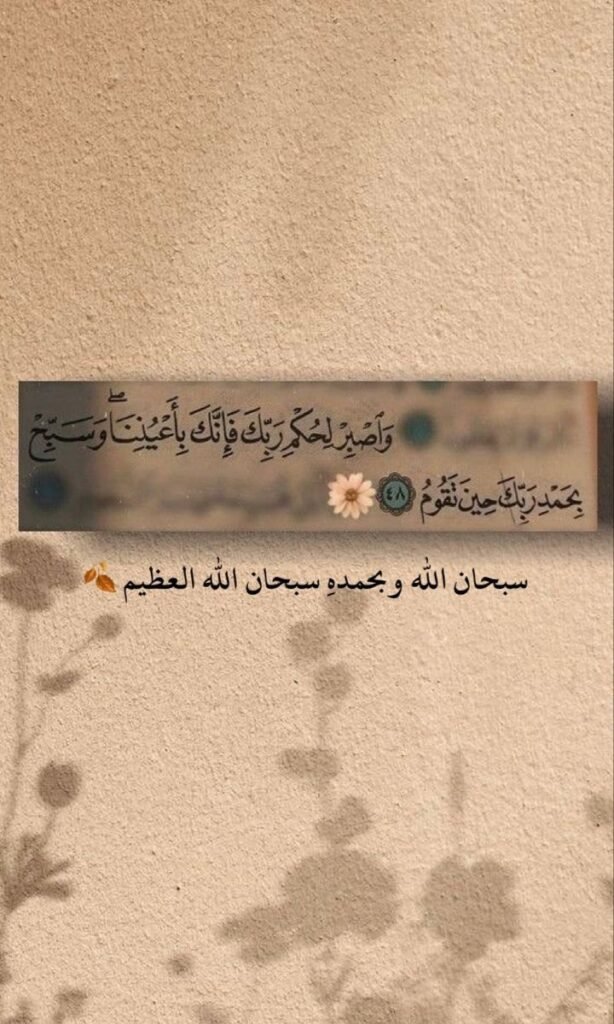 وَٱصْبِرْ لِحُكْمِ رَبِّكَ فَإِنَّكَ بِأَعْيُنِنَاۖ وَسَبِّحْ
بِحَمْدِ رَبِّكَ حِينَ تَقُومُ ٤٨
سبحان الله وبحمدهِ سبحان الله العظيم